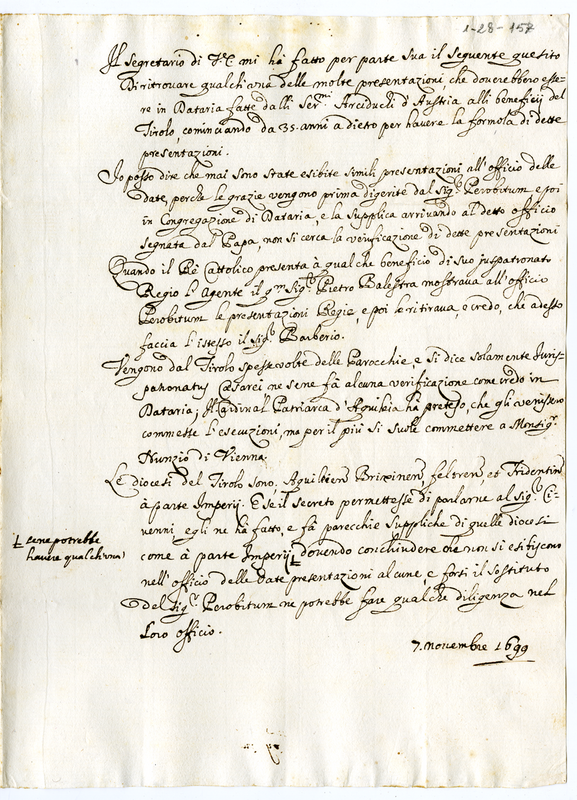 1-28-157
Il segretario di V.E. mi hà fatto per parte sua il seguente quesito
Di ritrovare qualch'una delle molte presentazioni, che dovrebbero esse-
re in Dataria fatte dalli Ser.mi Arciduchi d'Austria alli beneficij del
Tirolo, cominciando da 35 anni a dietro per havere la formola di dette
presentazioni.
Io posso dire che mai sono state esibite simili presentazioni all'officio delle
date, perche le grazie vengono prima digerite dal Sig.r Perobitum e poi
in Congregazione di Dataria, e la supplica arrivando al detto officio
segnata dal Papa, non si cerca la verificazione di dette presentazioni
Quando il Rè Cattolico presenta à qualche beneficio di suo juspatronato
Regio l'Agente il qm Sig.r Pietro Balestra mostrava all'officio
Perobitum le presentazioni Regie, e poi le ritirava, e credo, che adesso
faccia l'istesso il Sig.r Barberio.
Vengono dal Tirolo spesse volte delle Parocchie, e si dice solamente Juris-
patronatus Cesarei ne se ne fà alcuna verificazione come credo in
Dataria; Il Cardinal Patriarca d'Aquileia hà preteso, che gli venissero
commesse l'esecuzioni, ma per il più si suole commettere a Monsig.r
Nunzio di Vienna.
Le diocesi del Tirolo sono, Aquileien Brixinen feltren, et Tridentin
à parte Imperij. E se il secreto permettesse di parlarne al Sig.r Ci-
venni, egli ne hà fatto, e fà parecchie suppliche di quelle diocesi
come à parte Imperij L dovendo conchiudere che non si esibiscono
L e ne potrebbe
havere qualch'una
nell'officio delle date presentazioni alcune, e forsi il sostituto
del Sig.r Perobitum ne potrebbe fare qualche diligenza nel
loro officio.
7. novembre 1699